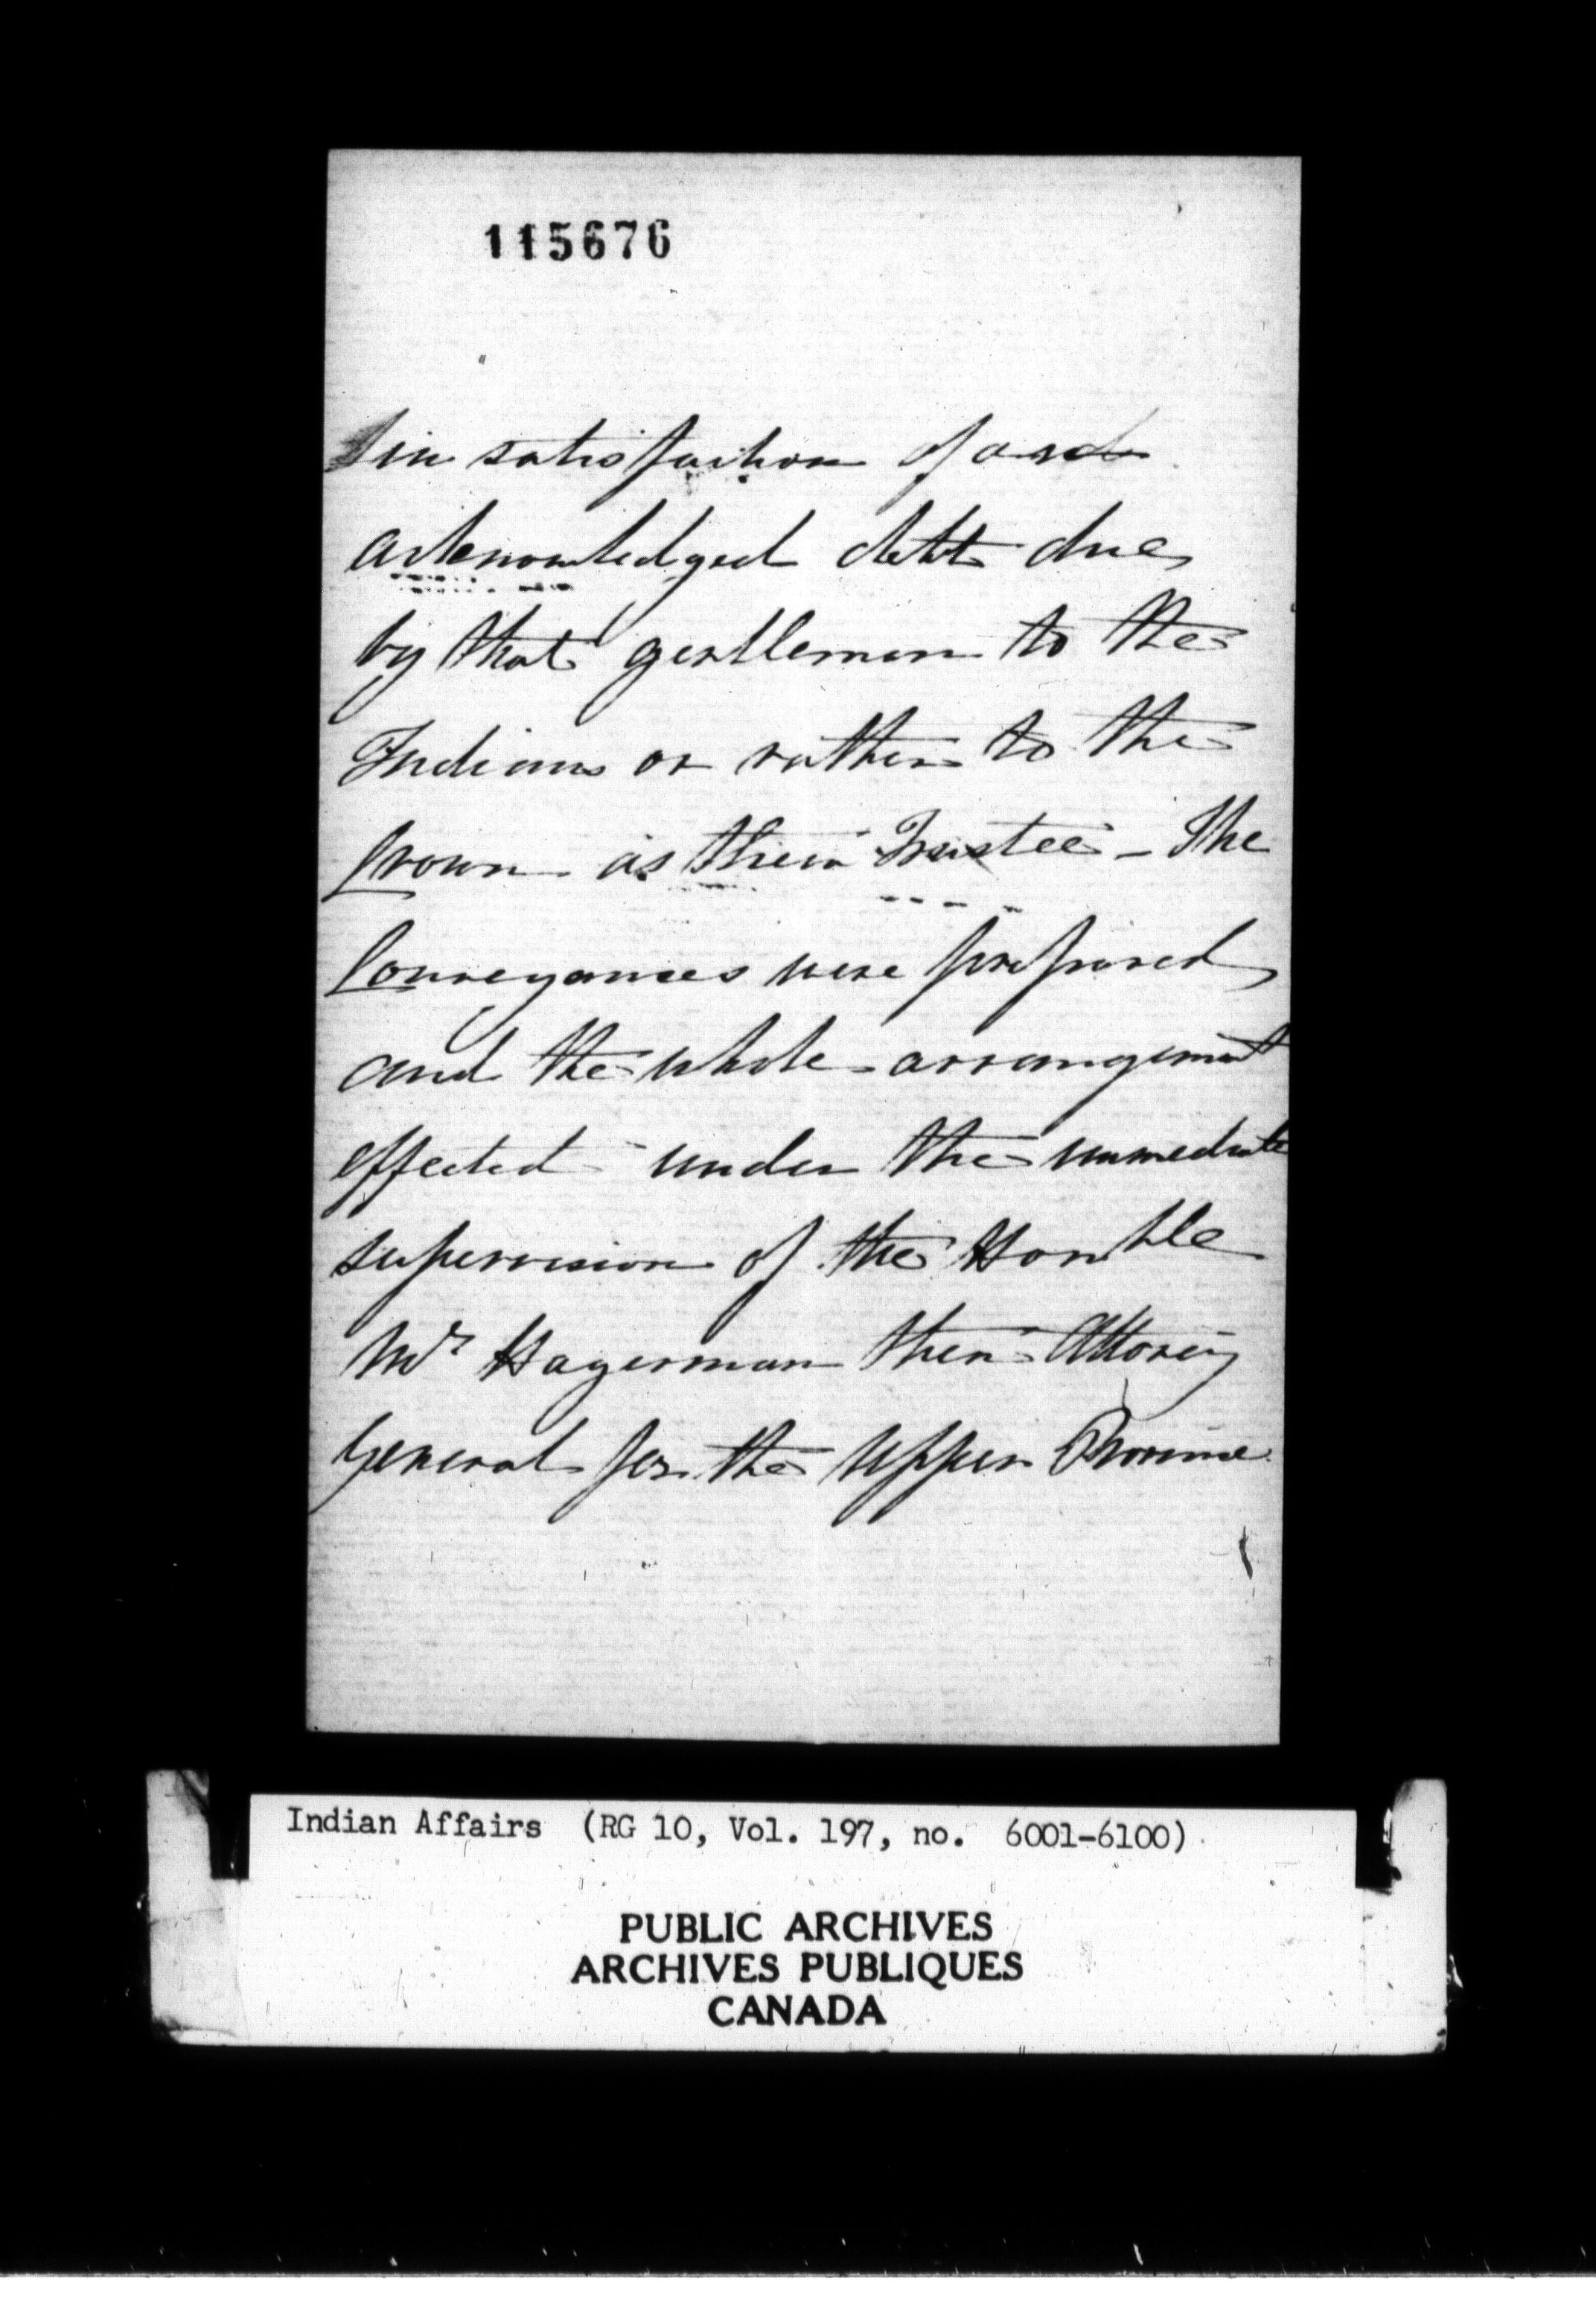 115676
in satisfaction of an
acknowledged debt due
by that gentleman to the
Indians or rather to the
Crown as their Trustee - The
Conveyances were prepared
and the whole arrangement
effected under the immediate
supervision of the Honble
Mr Hagerman then Attorney
General for the Upper Province
Indian Affairs (RG 10, Vol. 197, no. 6001-6100)
PUBLIC ARCHIVES
ARCHIVES PUBLIQUES
CANADA